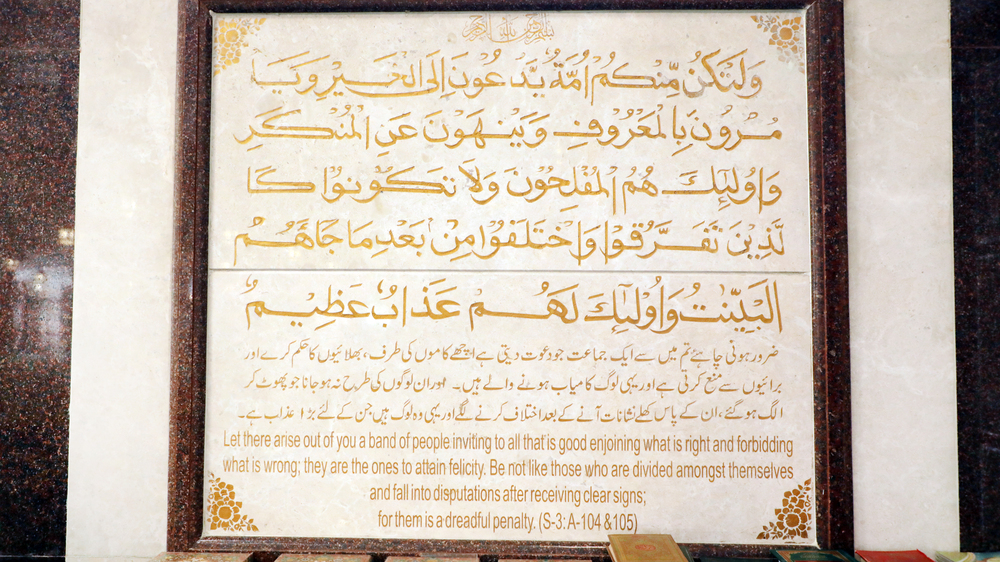 بسم الله الرحمن الرحيم
وَلْتَكُنْ مِّنْكُمْ اُمَّةٌ يَّدْعُوْنَ اِلَى الْخَيْرِ وَيَاْ
مُرُوْنَ بِالْمَعْرُوْفِ وَيَنْهَوْنَ عَنِ الْمُنْكَرِ
وَاُولٰٓئِكَ هُمُ الْمُفْلِحُوْنَ وَلَا تَكُوْنُوْا كَا
لَّذِيْنَ تَفَرَّقُوْا وَاخْتَلَفُوْا مِنْۢ بَعْدِ مَا جَآءَهُمُ
الْبَيِّنٰتُ وَاُولٰٓئِكَ لَهُمْ عَذَابٌ عَظِيْمٌ
ضرور ہونی چاہئے تم میں سے ایک جماعت جو دعوت دیتی ہے اچھے کاموں کی طرف، بھلائیوں کا حکم کرے اور
برائیوں سے منع کرتی ہے اور یہی لوگ کامیاب ہونے والے ہیں۔ اور ان لوگوں کی طرح نہ ہو جانا جو پھوٹ کر
الگ ہو گئے، ان کے پاس کھلے نشانات آنے کے بعد اختلاف کرنے لگے اور یہی وہ لوگ ہیں جن کے لئے بڑا عذاب ہے۔
Let there arise out of you a band of people inviting to all that is good enjoining what is right and forbidding
what is wrong; they are the ones to attain felicity. Be not like those who are divided amongst themselves
and fall into disputations after receiving clear signs;
for them is a dreadful penalty. (S-3: A-104 &105)